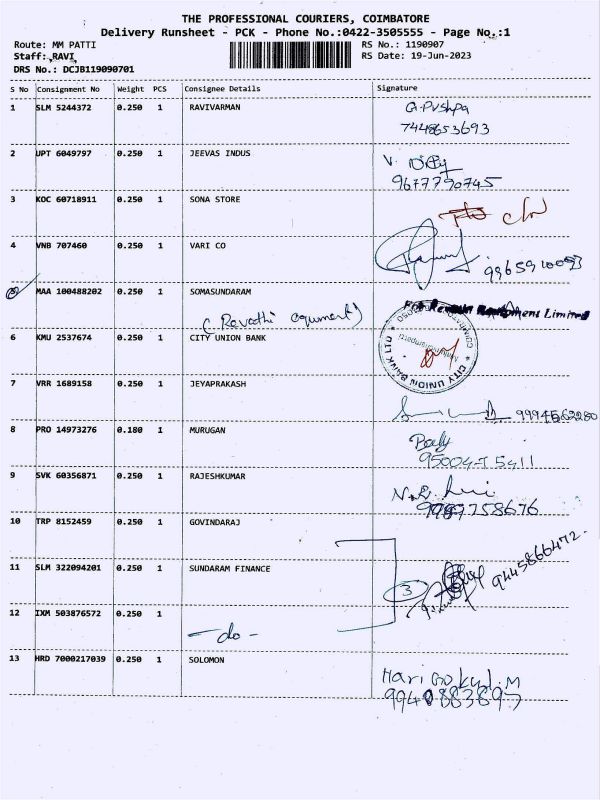 THE PROFESSIONAL COURIERS, COIMBATORE
Delivery Runsheet - PCK - Phone No.:0422-3505555 - Page No.:1
Route: MM PATTI RS No.: 1190907
Staff: RAVI RS Date: 19-Jun-2023
DRS No.: DCJB119090701
S No Consignment No Weight PCS Consignee Details Signature
1 SLM 5244372 0.250 1 RAVIVARMAN G. Pushpa
7448653693
2 UPT 6049797 0.250 1 JEEVAS INDUS V.
9677790745
3 KOC 60718911 0.250 1 SONA STORE
4 VNB 707460 0.250 1 VARI CO
9965910093
5 MAA 100488202 0.250 1 SOMASUNDARAM
(Revathi equment) For Limited
6 KMU 2537674 0.250 1 CITY UNION BANK
CITY UNION BANK LTD
7 VRR 1689158 0.250 1 JEYAPRAKASH
8 PRO 14973276 0.180 1 MURUGAN
9 SVK 60356871 0.250 1 RAJESHKUMAR
10 TRP 8152459 0.250 1 GOVINDARAJ
11 SLM 322094201 0.250 1 SUNDARAM FINANCE 3 9445866472
12 IXM 503876572 0.250 1
- do -
13 HRD 7000217039 0.250 1 SOLOMON
Hari Gokul.M